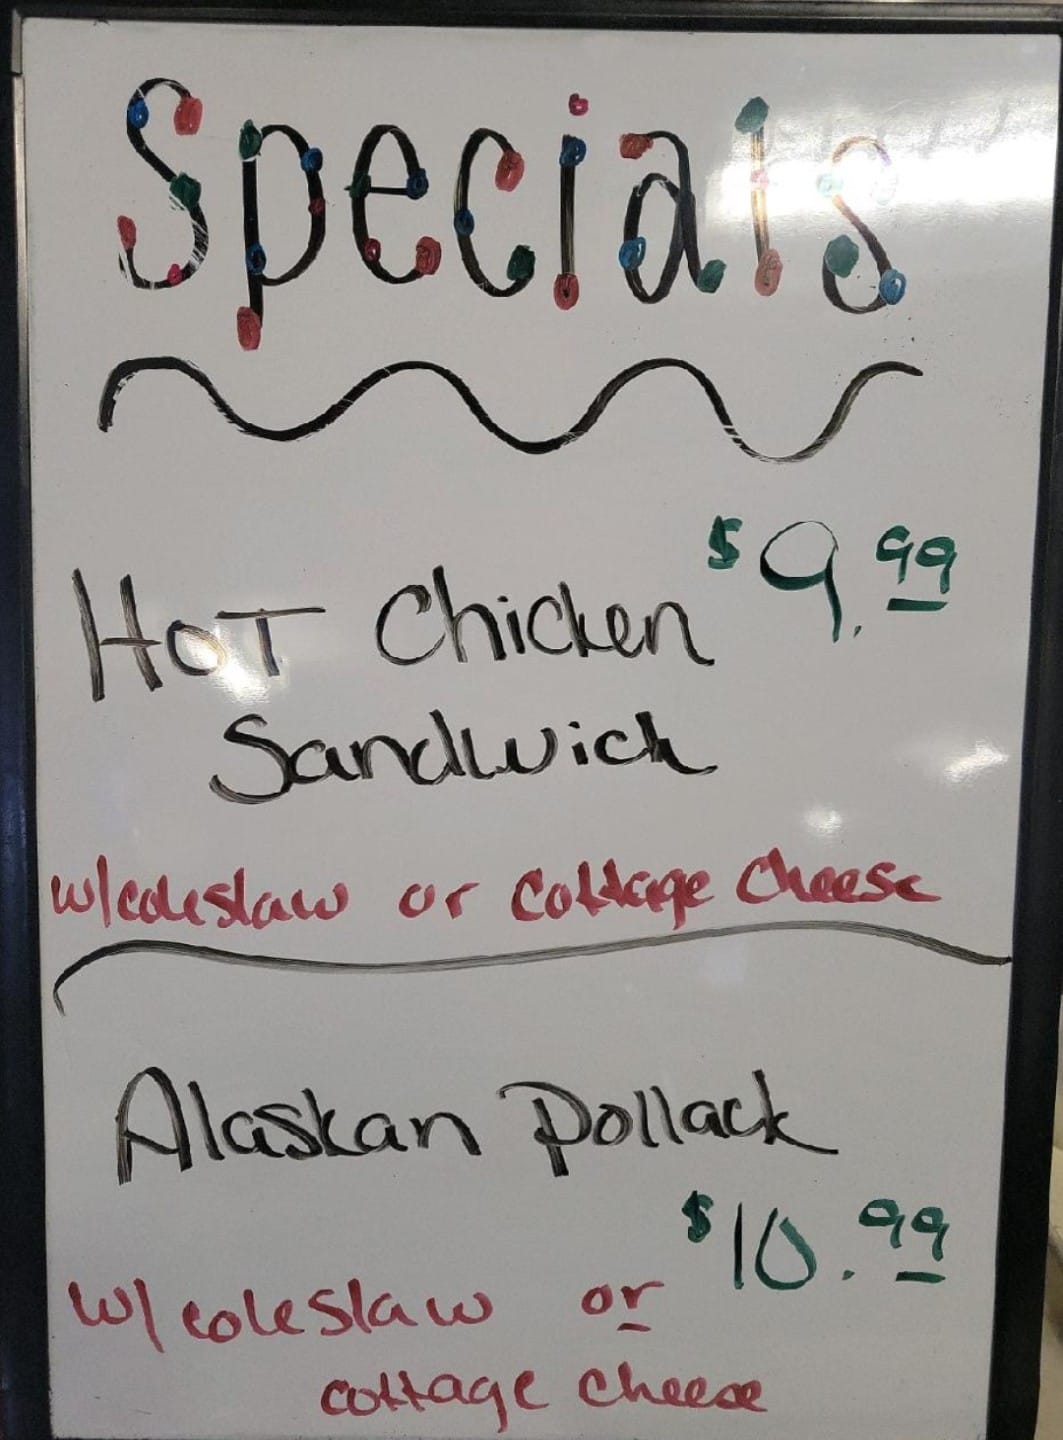 Specials
$9.99
Hot Chicken
Sandwich
w/coleslaw or Cottage Cheese
Alaskan Pollack
$10.99
w/coleslaw or
cottage cheese